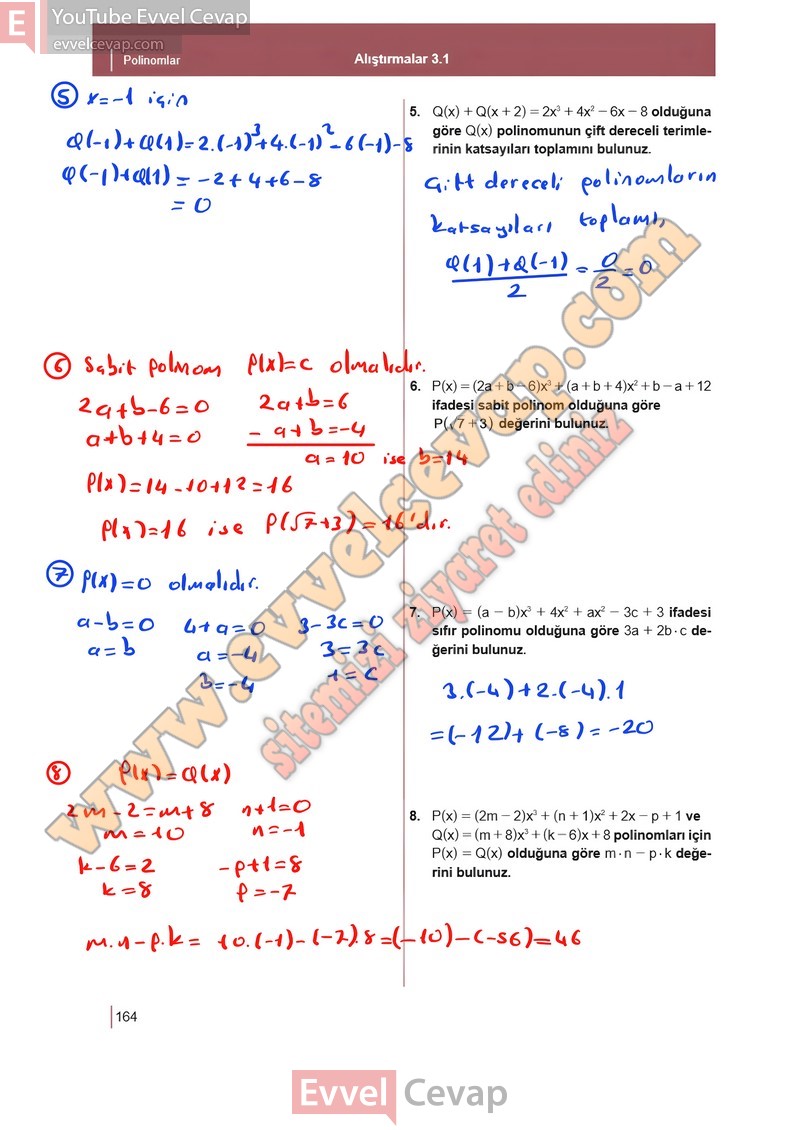 E YouTube Evvel Cevap
evvelcevap.com
Polinomlar
Alıştırmalar 3.1
5 x=-1 için
Q(-1)+Q(1)=2.(-1)³+4.(-1)²-6(-1)-8
Q(-1)+Q(1)=-2+4+6-8
=0
5. Q(x) + Q(x + 2) = 2x³ + 4x² − 6x − 8 olduğuna
göre Q(x) polinomunun çift dereceli terimle-
rinin katsayıları toplamını bulunuz.
Çift dereceli polinomların
katsayıları toplamı,
Q(1)+Q(-1)/2=0/2=0
6 Sabit polinom P(x)=c olmalıdır.
2a+b-6=0 2a+b=6
a+b+4=0 - a+b=-4
a=10 ise b=14
P(x)=14-10+12=16
P(x)=16 ise P(√7+3)=16'dır.
6. P(x) = (2a + b − 6)x³ + (a + b + 4)x² + b − a + 12
ifadesi sabit polinom olduğuna göre
P(√7 + 3) değerini bulunuz.
7 P(x)=0 olmalıdır.
a-b=0 4+a=0 3-3c=0
a=b a=-4 3=3c
b=-4 1=c
7. P(x) = (a − b)x³ + 4x² + ax² − 3c + 3 ifadesi
sıfır polinomu olduğuna göre 3a + 2b · c de-
ğerini bulunuz.
3.(-4)+2.(-4).1
=(-12)+(-8)=-20
8 P(x)=Q(x)
2m-2=m+8 n+1=0
m=10 n=-1
k-6=2 -p+1=8
k=8 p=-7
m.n-p.k= 10.(-1)-(-7).8=(-10)-(-56)=46
8. P(x) = (2m − 2)x³ + (n + 1)x² + 2x − p + 1 ve
Q(x) = (m + 8)x³ + (k − 6)x + 8 polinomları için
P(x) = Q(x) olduğuna göre m · n − p · k değe-
rini bulunuz.
www.evvelcevap.com
sitemizi ziyaret ediniz
164
Evvel Cevap